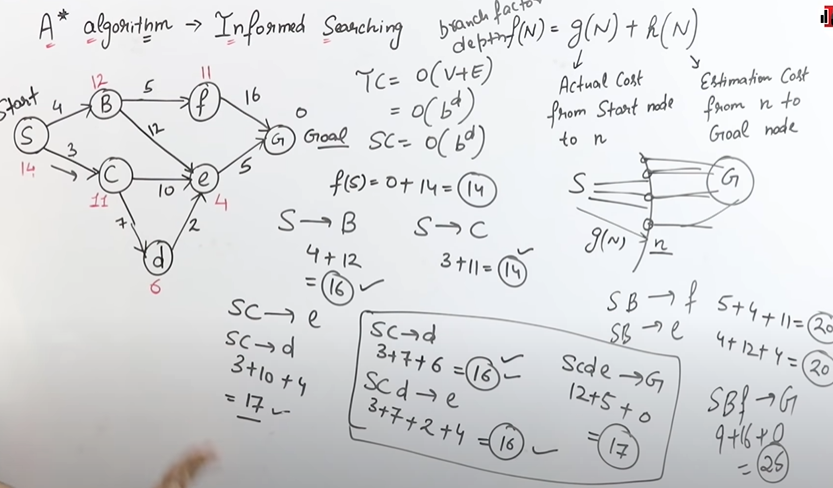 A* algorithm → Informed Searching
branch factor
depth
f(N) = g(N) + h(N)
Actual Cost
from Start node
to n
Estimation Cost
from n to
Goal node
TC = O(V+E)
= O(b^d)
SC = O(b^d)
Start
S
14
4
3
12
B
5
11
f
16
0
G Goal
12
C
11
10
e
4
5
7
2
d
6
S
G
g(N)
n
f(S) = 0 + 14 = 14
S → B
4 + 12
= 16 ✓
S → C
3 + 11 = 14 ✓
SC → e
SC → d
3 + 10 + 4
= 17 ✓
SC → d
3 + 7 + 6 = 16 ✓
SCd → e
3 + 7 + 2 + 4 = 16 ✓
Scde → G
12 + 5 + 0
= 17
SB → f 5 + 4 + 11 = 20
SB → e 4 + 12 + 4 = 20
SBf → G
9 + 16 + 0
= 25